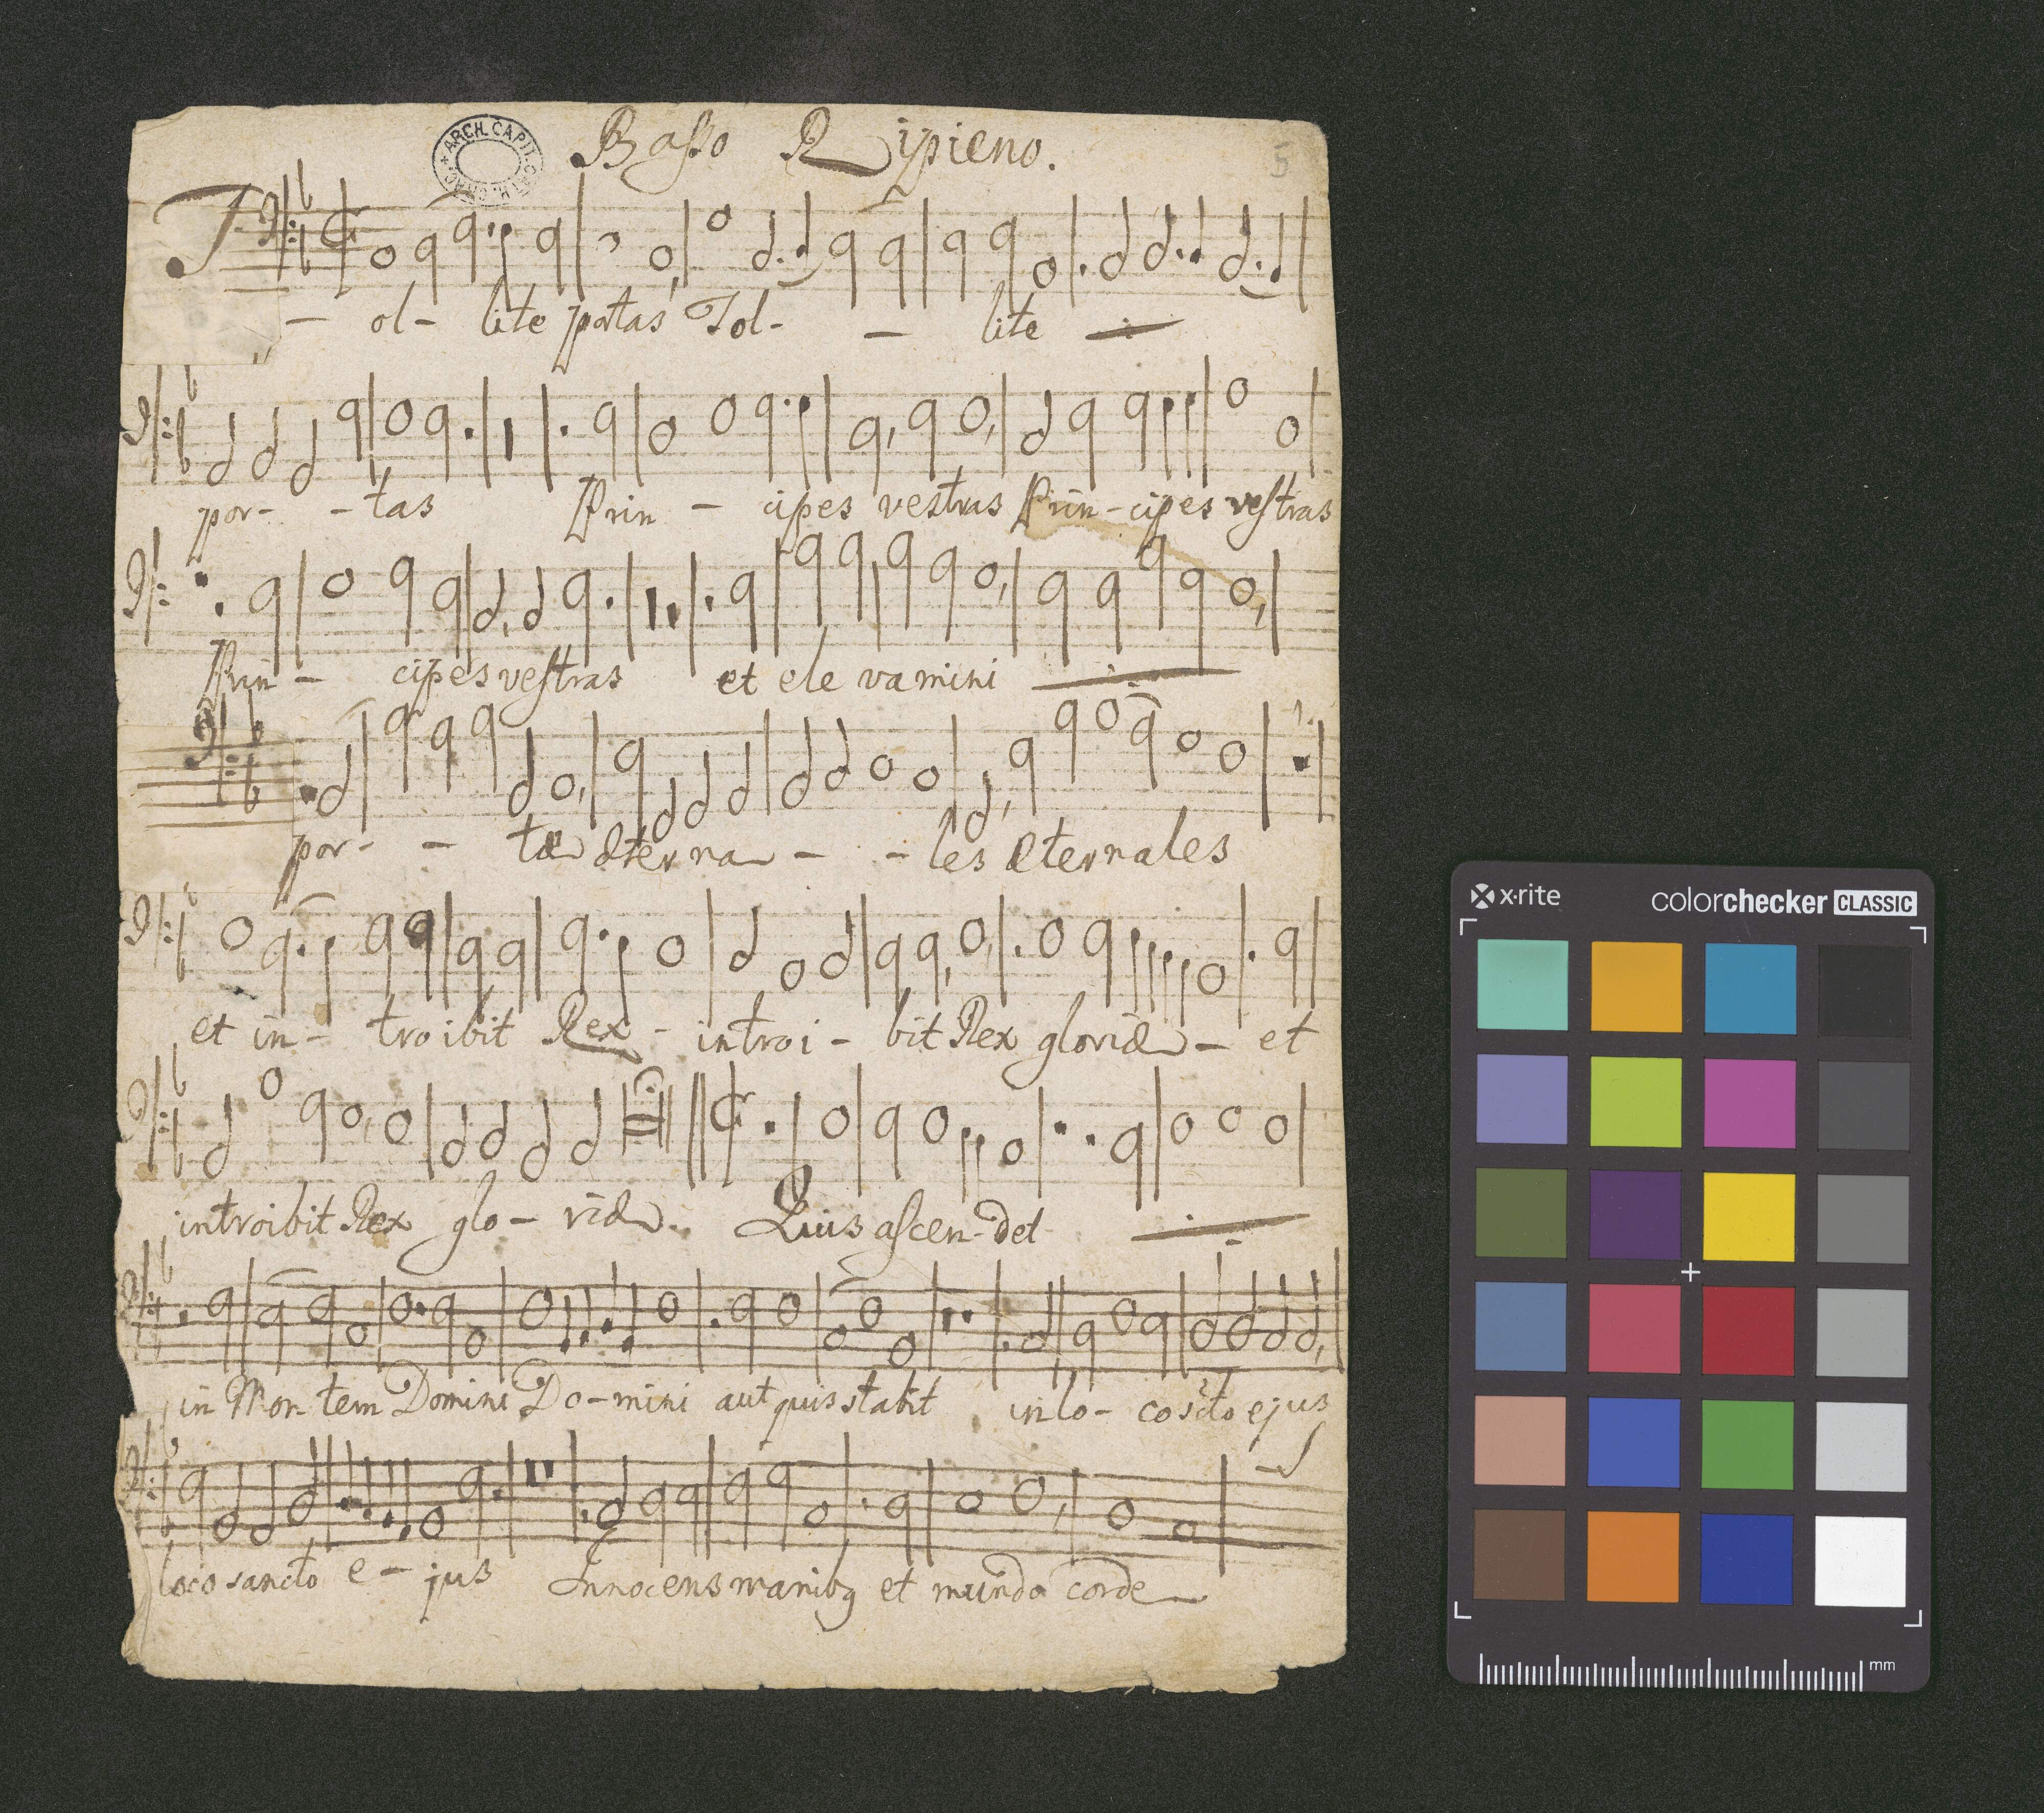 Basso Ripieno.
5
ARCH. CAPIT.
Tol- lite portas Tol- - lite
por- - tas Prin - cipes vestras Prin-cipes vestras
Prin - cipes vestras et ele vamini
por- - tæ æterna - - les æternales
et in- troibit Rex - introi - bit Rex gloriæ - et
introibit Rex glo- riæ. Quis ascen-det
in Mon tem Domini Do-mini aut quis stabit in lo- co scto ejus
loco sancto e - jus Innocens manibq et mundo corde
x·rite
colorchecker CLASSIC
mm